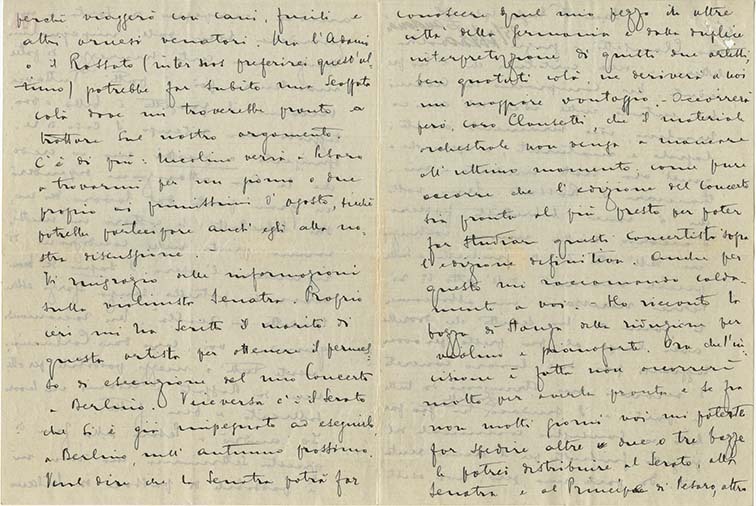 perchè viaggerò con cani, fucili e
altri arnesi venatori. Ma l'Adami
o il Rossato (inter nos preferirei quest'ul-
timo) potrebbe far subito una scappata
colà dove mi troverebbe pronto a
trattare sul nostro argomento.
C'è di più: Nicolino verrà a Pesaro
a trovarmi per un giorno o due
proprio ai primissimi d'agosto, sicchè
potrebbe partecipare anch'egli alla no-
stra discussione.
Vi ringrazio delle informazioni
sulla violinista Senatra. Proprio
ieri mi ha scritto il marito di
questa artista per ottenere il permes-
so di esecuzione del mio Concerto
a Berlino. Viceversa c'è il Serato
che si è già impegnato ad eseguirlo
a Berlino, nell'autunno prossimo.
Vuol dire che la Senatra potrà far
conoscere quel mio pezzo in altre
città della Germania e dalla duplice
interpretazione di questi due artisti,
ben quotati colà, ne deriverà a noi
un maggiore vantaggio. - Occorrerà
però, caro Clausetti, che il materiale
orchestrale non venga a mancare
all'ultimo momento, come pure
occorre che l'edizione del Concerto
sia pronta al più presto per poter
far studiar questi concertisti sopra
l'edizione definitiva. Anche per
questo mi raccomando calda-
mente a voi. - Ho ricevuto la
bozza di stampa della riduzione per
violino e pianoforte. Ora che l'in-
cisione è fatta non occorrerà
molto per averla pronta e se fra
non molti giorni voi mi poteste
far spedire altre due o tre bozze
le potrei distribuire al Serato, alla
Senatra e al Principe di Pesaro, altro